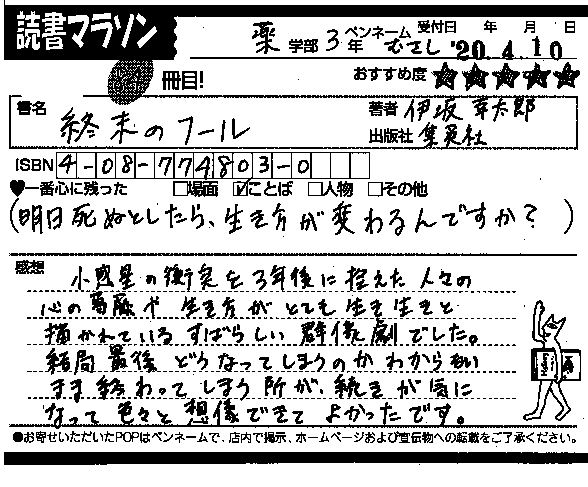 読書マラソン
薬 学部 3 年 ペンネーム むさし 受付日 年 月 日 '20.4.10
冊目!
おすすめ度 ★★★★★
書名 終末のフール
著者 伊坂幸太郎
出版社 集英社
ISBN 4-08-774803-0
♥一番心に残った □場面 ☑ことば □人物 □その他
(明日死ぬとしたら、生き方が変わるんですか?)
感想
小惑星の衝突を3年後に控えた人々の
心の葛藤や生き方がとても生き生きと
描かれているすばらしい群像劇でした。
結局最後どうなってしまうのかわからない
まま終わってしまう所が、続きが気に
なって色々と想像できてよかったです。
●お寄せいただいたPOPはペンネームで、店内で掲示、ホームページおよび宣伝物への転載をご了承ください。